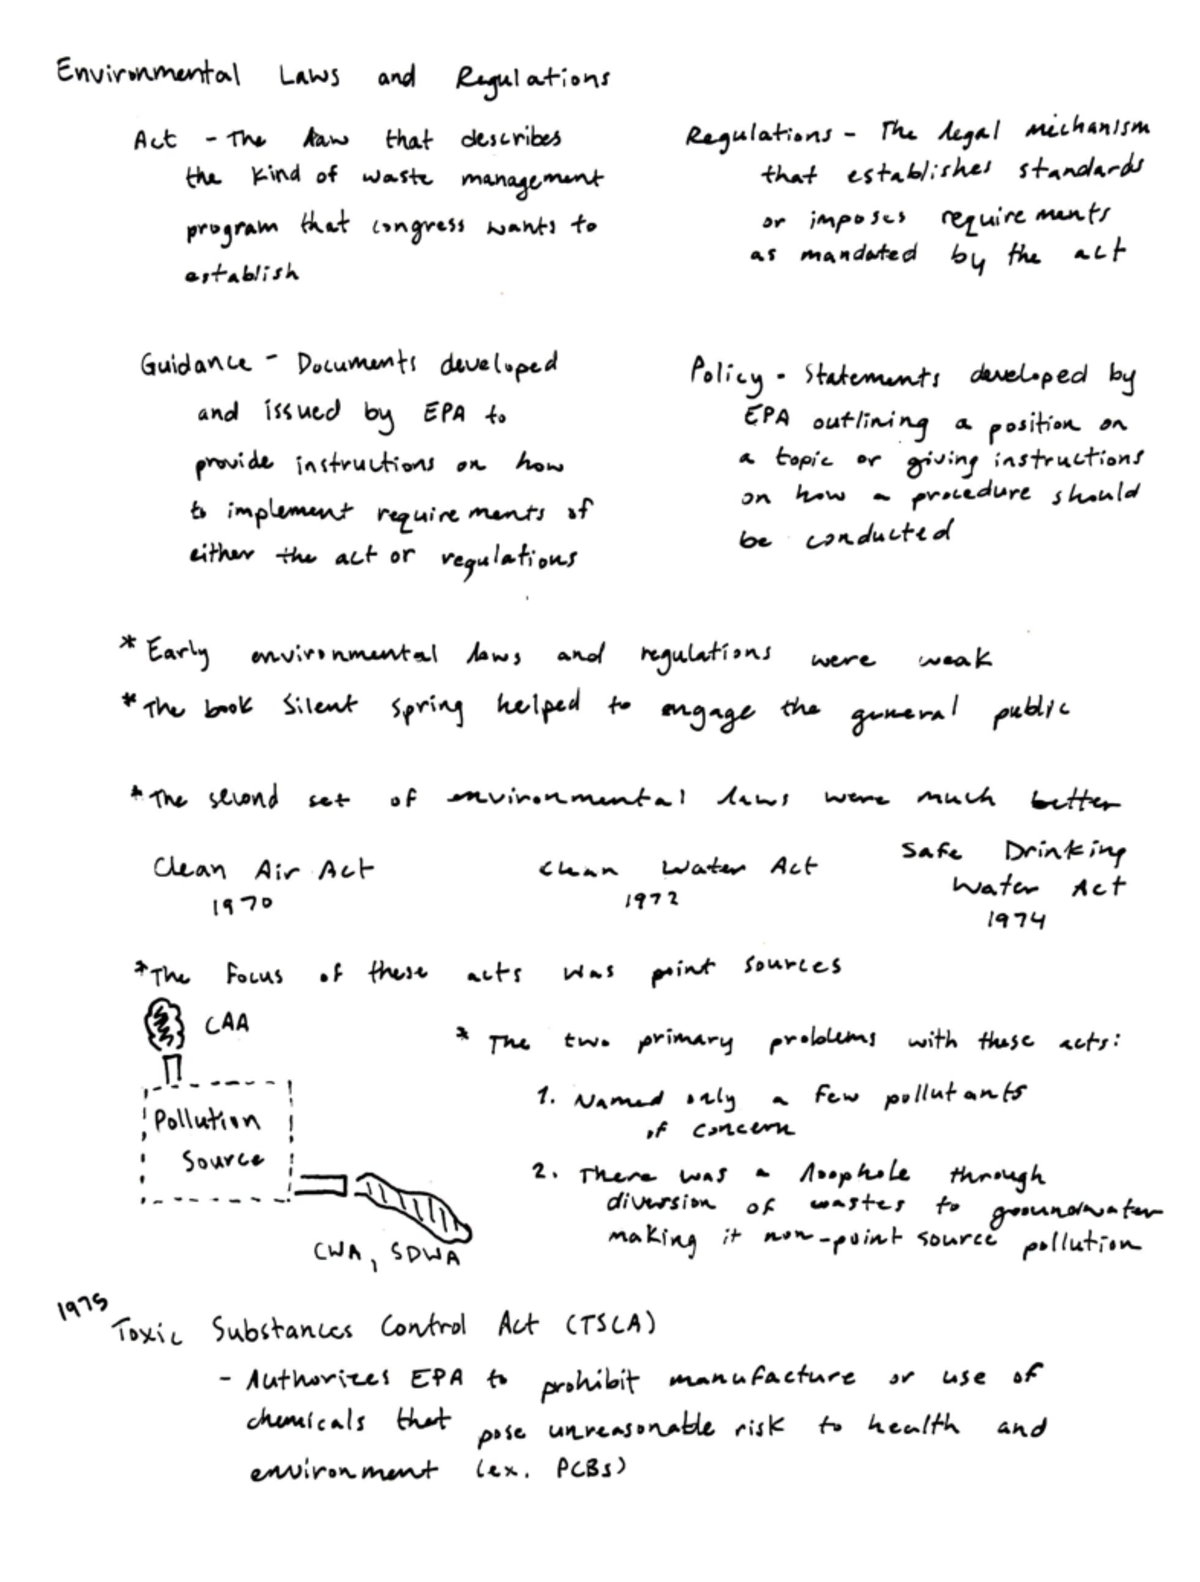 Environmental Laws and Regulations
Act - The law that describes
the kind of waste management
program that congress wants to
establish
Regulations - The legal mechanism
that establishes standards
or imposes requirements
as mandated by the act
Guidance - Documents developed
and issued by EPA to
provide instructions on how
to implement requirements of
either the act or regulations
Policy - Statements developed by
EPA outlining a position on
a topic or giving instructions
on how a procedure should
be conducted
* Early environmental laws and regulations were weak
* The book Silent Spring helped to engage the general public
* The second set of environmental laws were much better
Clean Air Act
1970
Clean Water Act
1972
Safe Drinking
Water Act
1974
* The focus of these acts was point sources
CAA
Pollution
Source
CWA, SDWA
* The two primary problems with these acts:
1. Named only a few pollutants
of concern
2. There was a loophole through
diversion of wastes to groundwater
making it non-point source pollution
1975
Toxic Substances Control Act (TSCA)
- Authorizes EPA to prohibit manufacture or use of
chemicals that pose unreasonable risk to health and
environment (ex. PCBs)